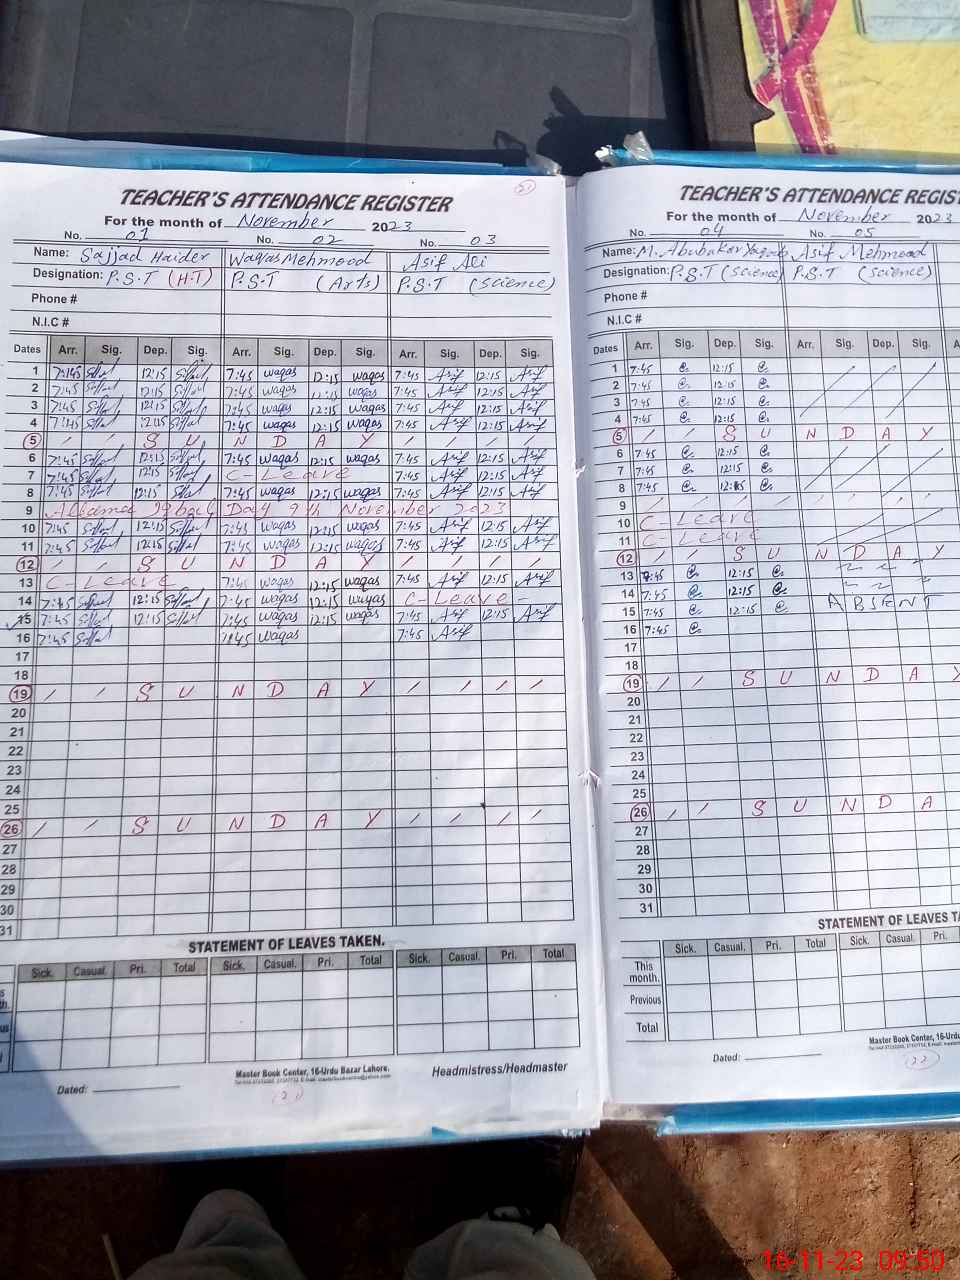 21
TEACHER'S ATTENDANCE REGISTER
For the month of November 2023
No. 01 No. 02 No. 03
Name: Sajjad Haider Waqas Mehmood Asif Ali
Designation: P.S.T (H.T) P.S.T (Arts) P.S.T (Science)
Phone #
N.I.C #
Dates Arr. Sig. Dep. Sig. Arr. Sig. Dep. Sig. Arr. Sig. Dep. Sig.
1 7:45 12:15 7:45 waqas 12:15 waqas 7:45 Asif 12:15 Asif
2 7:45 12:15 7:45 waqas 12:15 waqas 7:45 Asif 12:15 Asif
3 7:45 12:15 7:45 waqas 12:15 waqas 7:45 Asif 12:15 Asif
4 7:45 12:15 7:45 waqas 12:15 waqas 7:45 Asif 12:15 Asif
5 / / S U N D A Y / / / /
6 7:45 12:15 7:45 waqas 12:15 waqas 7:45 Asif 12:15 Asif
7 7:45 12:15 C-Leave 7:45 Asif 12:15 Asif
8 7:45 12:15 7:45 waqas 12:15 waqas 7:45 Asif 12:15 Asif
9 Allama Iqbal Day 9th November 2023
10 7:45 12:15 7:45 waqas 12:15 waqas 7:45 Asif 12:15 Asif
11 7:45 12:15 7:45 waqas 12:15 waqas 7:45 Asif 12:15 Asif
12 / / S U N D A Y / / / /
13 C-Leave 7:45 waqas 12:15 waqas 7:45 Asif 12:15 Asif
14 7:45 12:15 7:45 waqas 12:15 waqas C-Leave -
15 7:45 12:15 7:45 waqas 12:15 waqas 7:45 Asif 12:15 Asif
16 7:45 7:45 waqas 7:45 Asif
17
18
19 / / S U N D A Y / / / /
20
21
22
23
24
25
26 / / S U N D A Y / / / /
27
28
29
30
31
STATEMENT OF LEAVES TAKEN.
Sick. Casual. Pri. Total Sick. Casual. Pri. Total Sick. Casual. Pri. Total
Master Book Center, 16-Urdu Bazar Lahore.
Headmistress/Headmaster
Dated:
(21)
TEACHER'S ATTENDANCE REGIST
For the month of November 2023
No. 04 No. 05
Name: M. Abubakar Asif Mehmood
Designation: P.S.T (Science) P.S.T (Science)
Phone #
N.I.C #
Dates Arr. Sig. Dep. Sig. Arr. Sig. Dep. Sig.
1 7:45 12:15
2 7:45 12:15
3 7:45 12:15
4 7:45 12:15
5 / / S U N D A Y
6 7:45 12:15
7 7:45 12:15
8 7:45 12:15
9 / / / / / / / /
10 C-Leave
11 C-Leave
12 / / S U N D A Y
13 7:45 12:15
14 7:45 12:15
15 7:45 12:15 ABSENT
16 7:45
17
18
19 / / S U N D A Y
20
21
22
23
24
25
26 / / S U N D A
27
28
29
30
31
STATEMENT OF LEAVES TA
Sick. Casual. Pri. Total Sick. Casual. Pri.
This month.
Previous
Total
Master Book Center, 16-Urdu
Dated:
(22)
16-11-23 09:50